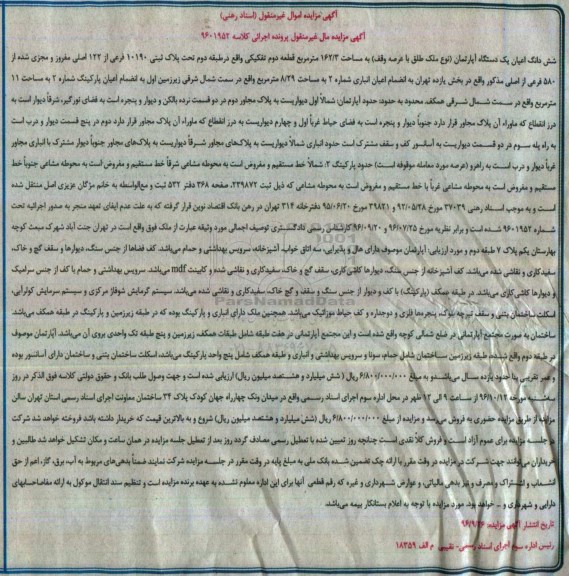 آگهی مزایده اموال غیرمنقول (اسناد رهنی)
آگهی مزایده مال غیرمنقول پرونده اجرائی کلاسه ۹۶۰۱۹۵۲
شش دانگ اعیان یک دستگاه آپارتمان (نوع ملک طلق با عرصه وقف) به مساحت ۱۶۲/۳ مترمربع قطعه دوم تفکیکی واقع درطبقه دوم تحت پلاک ثبتی ۱۰۱۹۰ فرعی از ۱۲۲ اصلی مفروز و مجزی شده از
۵۸۰ فرعی از اصلی مذکور واقع در بخش یازده تهران به انضمام اعیان انباری شماره ۲ به مساحت ۸/۲۹ مترمربع واقع در سمت شمال شرقی زیرزمین اول به انضمام اعیان پارکینگ شماره ۲ به مساحت ۱۱
مترمربع واقع در سمت شمال شرقی همکف. محدود به حدود: حدود آپارتمان شمالاً اول دیواریست به پلاک مجاور دوم در دو قسمت نرده بالکن و دیوار و پنجره است به فضای نورگیر، شرقاً دیوار است به
درز انقطاع که ماوراء آن پلاک مجاور قرار دارد جنوباً دیوار و پنجره است به فضای حیاط غرباً اول و چهارم دیواریست به درز انقطاع که ماوراء آن پلاک مجاور قرار دارد دوم در پنج قسمت دیوار و درب است
به راه پله سوم در دو قسمت دیواریست به آسانسور کف و سقف مشترک است حدود انباری شمالاً دیواریست به پلاک‌های مجاور شرقاً دیواریست به پلاک‌های مجاور جنوباً دیوار مشترک با انباری مجاور
غرباً دیوار و درب است به راهرو (عرصه مورد معامله موقوفه است) حدود پارکینگ ۲: شمالاً خط مستقیم و مفروض است به محوطه مشاعی شرقاً خط مستقیم و مفروض است به محوطه مشاعی جنوباً خط
مستقیم و مفروض است به محوطه مشاعی غرباً با خط مستقیم و مفروض است به محوطه مشاعی که ذیل ثبت ۲۳۹۸۷۲، صفحه ۳۶۸ دفتر ۵۳۲ ثبت و مع‌الواسطه به خانم مژگان عزیزی اصل منتقل شده
است و به موجب اسناد رهنی ۳۷۰۳۹ مورخ ۹۲/۰۵/۳۸ و ۳۹۸۲۱ مورخ ۹۵/۰۶/۲۰ دفترخانه ۳۱۴ تهران در رهن بانک اقتصاد نوین قرار گرفته که به علت عدم ایفای تعهد منجر به صدور اجرائیه تحت
شماره ۹۶۰۱۹۵۲ شده است و برابر نظریه مورخ ۹۶/۰۷/۲۵ و ۹۶/۰۹/۲۰ کارشناس رسمی دادگستری توصیف اجمالی مورد وثیقه عبارت از ملک فوق واقع است در تهران جنت آباد شهرک مبعث کوچه
بهارستان یکم پلاک ۷ طبقه دوم و مورد ارزیابی: آپارتمان موصوف دارای هال و پذیرایی، سه اتاق خواب، آشپزخانه، سرویس بهداشتی و حمام می‌باشد. کف فضاها از جنس سنگ، دیوارها و سقف گچ و خاک،
سفیدکاری و نقاشی شده می‌باشد. کف آشپزخانه از جنس سنگ، دیوارها کاشی‌کاری، سقف گچ و خاک، سفیدکاری و نقاشی شده و کابینت mdf می‌باشد. سرویس بهداشتی و حمام با کف از جنس سرامیک
و دیوارها کاشی‌کاری می‌باشد. در طبقه همکف (پارکینگ) با کف و دیوار از جنس سنگ و سقف گچ خاک، سفیدکاری و نقاشی شده می‌باشد. سیستم گرمایش شوفاژ مرکزی و سیستم سرمایش کولرآبی،
اسکلت ساختمان بتنی و سقف تیرچه بلوک، پنجره‌ها فلزی و دوجداره و کف حیاط موزائیک می‌باشد. همچنین ملک دارای انباری و پارکینگ بوده که در طبقه زیرزمین و پارکینگ در طبقه همکف می‌باشد
ساختمان به صورت مجتمع آپارتمانی در ضلع شمالی کوچه واقع شده است و این مجتمع آپارتمانی در هفت طبقه شامل طبقات همکف، زیرزمین و پنج طبقه تک واحدی بروی آن می‌باشد. آپارتمان موصوف
در طبقه دوم واقع شده، طبقه زیرزمین ساختمان شامل حمام، سونا و سرویس بهداشتی و انباری و طبقه همکف شامل پنج واحد پارکینگ می‌باشد، اسکلت ساختمان بتنی و ساختمان دارای آسانسور بوده
و عمر تقریبی بنا حدود پازده سال می‌باشد و به مبلغ ۶/۸۰۰/۰۰۰/۰۰۰ ریال ( شش میلیارد و هشتصد میلیون ریال) ارزیابی شده است و جهت وصول طلب بانک و حقوق دولتی کلاسه فوق الذکر در روز
سه‌شنبه مورخه ۹۶/۱۰/۱۲ از ساعت ۹ الی ۱۲ ظهر در محل اداره سوم اجرای اسناد رسمی واقع در میدان ونک چهارراه جهان کودک پلاک ۳۴ ساختمان معاونت اجرای اسناد رسمی استان تهران سالن
مزایده از طریق مزایده حضوری به فروش می‌رسد و مزایده از مبلغ ۶/۸۰۰/۰۰۰/۰۰۰ ریال (شش میلیارد و هشتصد میلیون ریال) شروع و به بالاترین قیمت که خریدار داشته باشد فروخته خواهد شد شرکت
در جلسه مزایده برای عموم آزاد است و فروش کلاً نقدی است چنانچه روز تعیین شده با تعطیل رسمی مصادف گردد روز بعد از تعطیل جلسه مزایده در همان ساعت و مکان تشکیل خواهد شد طالبین و
خریداران می‌توانند جهت شرکت در مزایده در وقت مقرر با ارائه چک تضمین شده بانک ملی به مبلغ پایه در وقت مقرر در جلسه مزایده شرکت نمایند ضمناً بدهی‌های مربوطه به آب، برق، گاز، اعم از حق
انشعاب و اشتراک و مصرف و نیز بدهی مالیاتی، و عوارض شهرداری و غیره که رقم قطعی آنها برای این اداره معلوم نشده به عهده برنده مزایده است و تنظیم سند انتقال موکول به ارائه مفاصاحسابهای
دارایی و شهرداری و .. خواهد بود. مورد مزایده با توجه به اعلام بستانکار بیمه می‌باشد.
تاریخ انتشار آگهی مزایده: ۹۶/۹/۲۶
رئیس اداره سوم اجرای اسناد رسمی- نقیبی م الف ۱۸۳۵۹
ParsNamadData